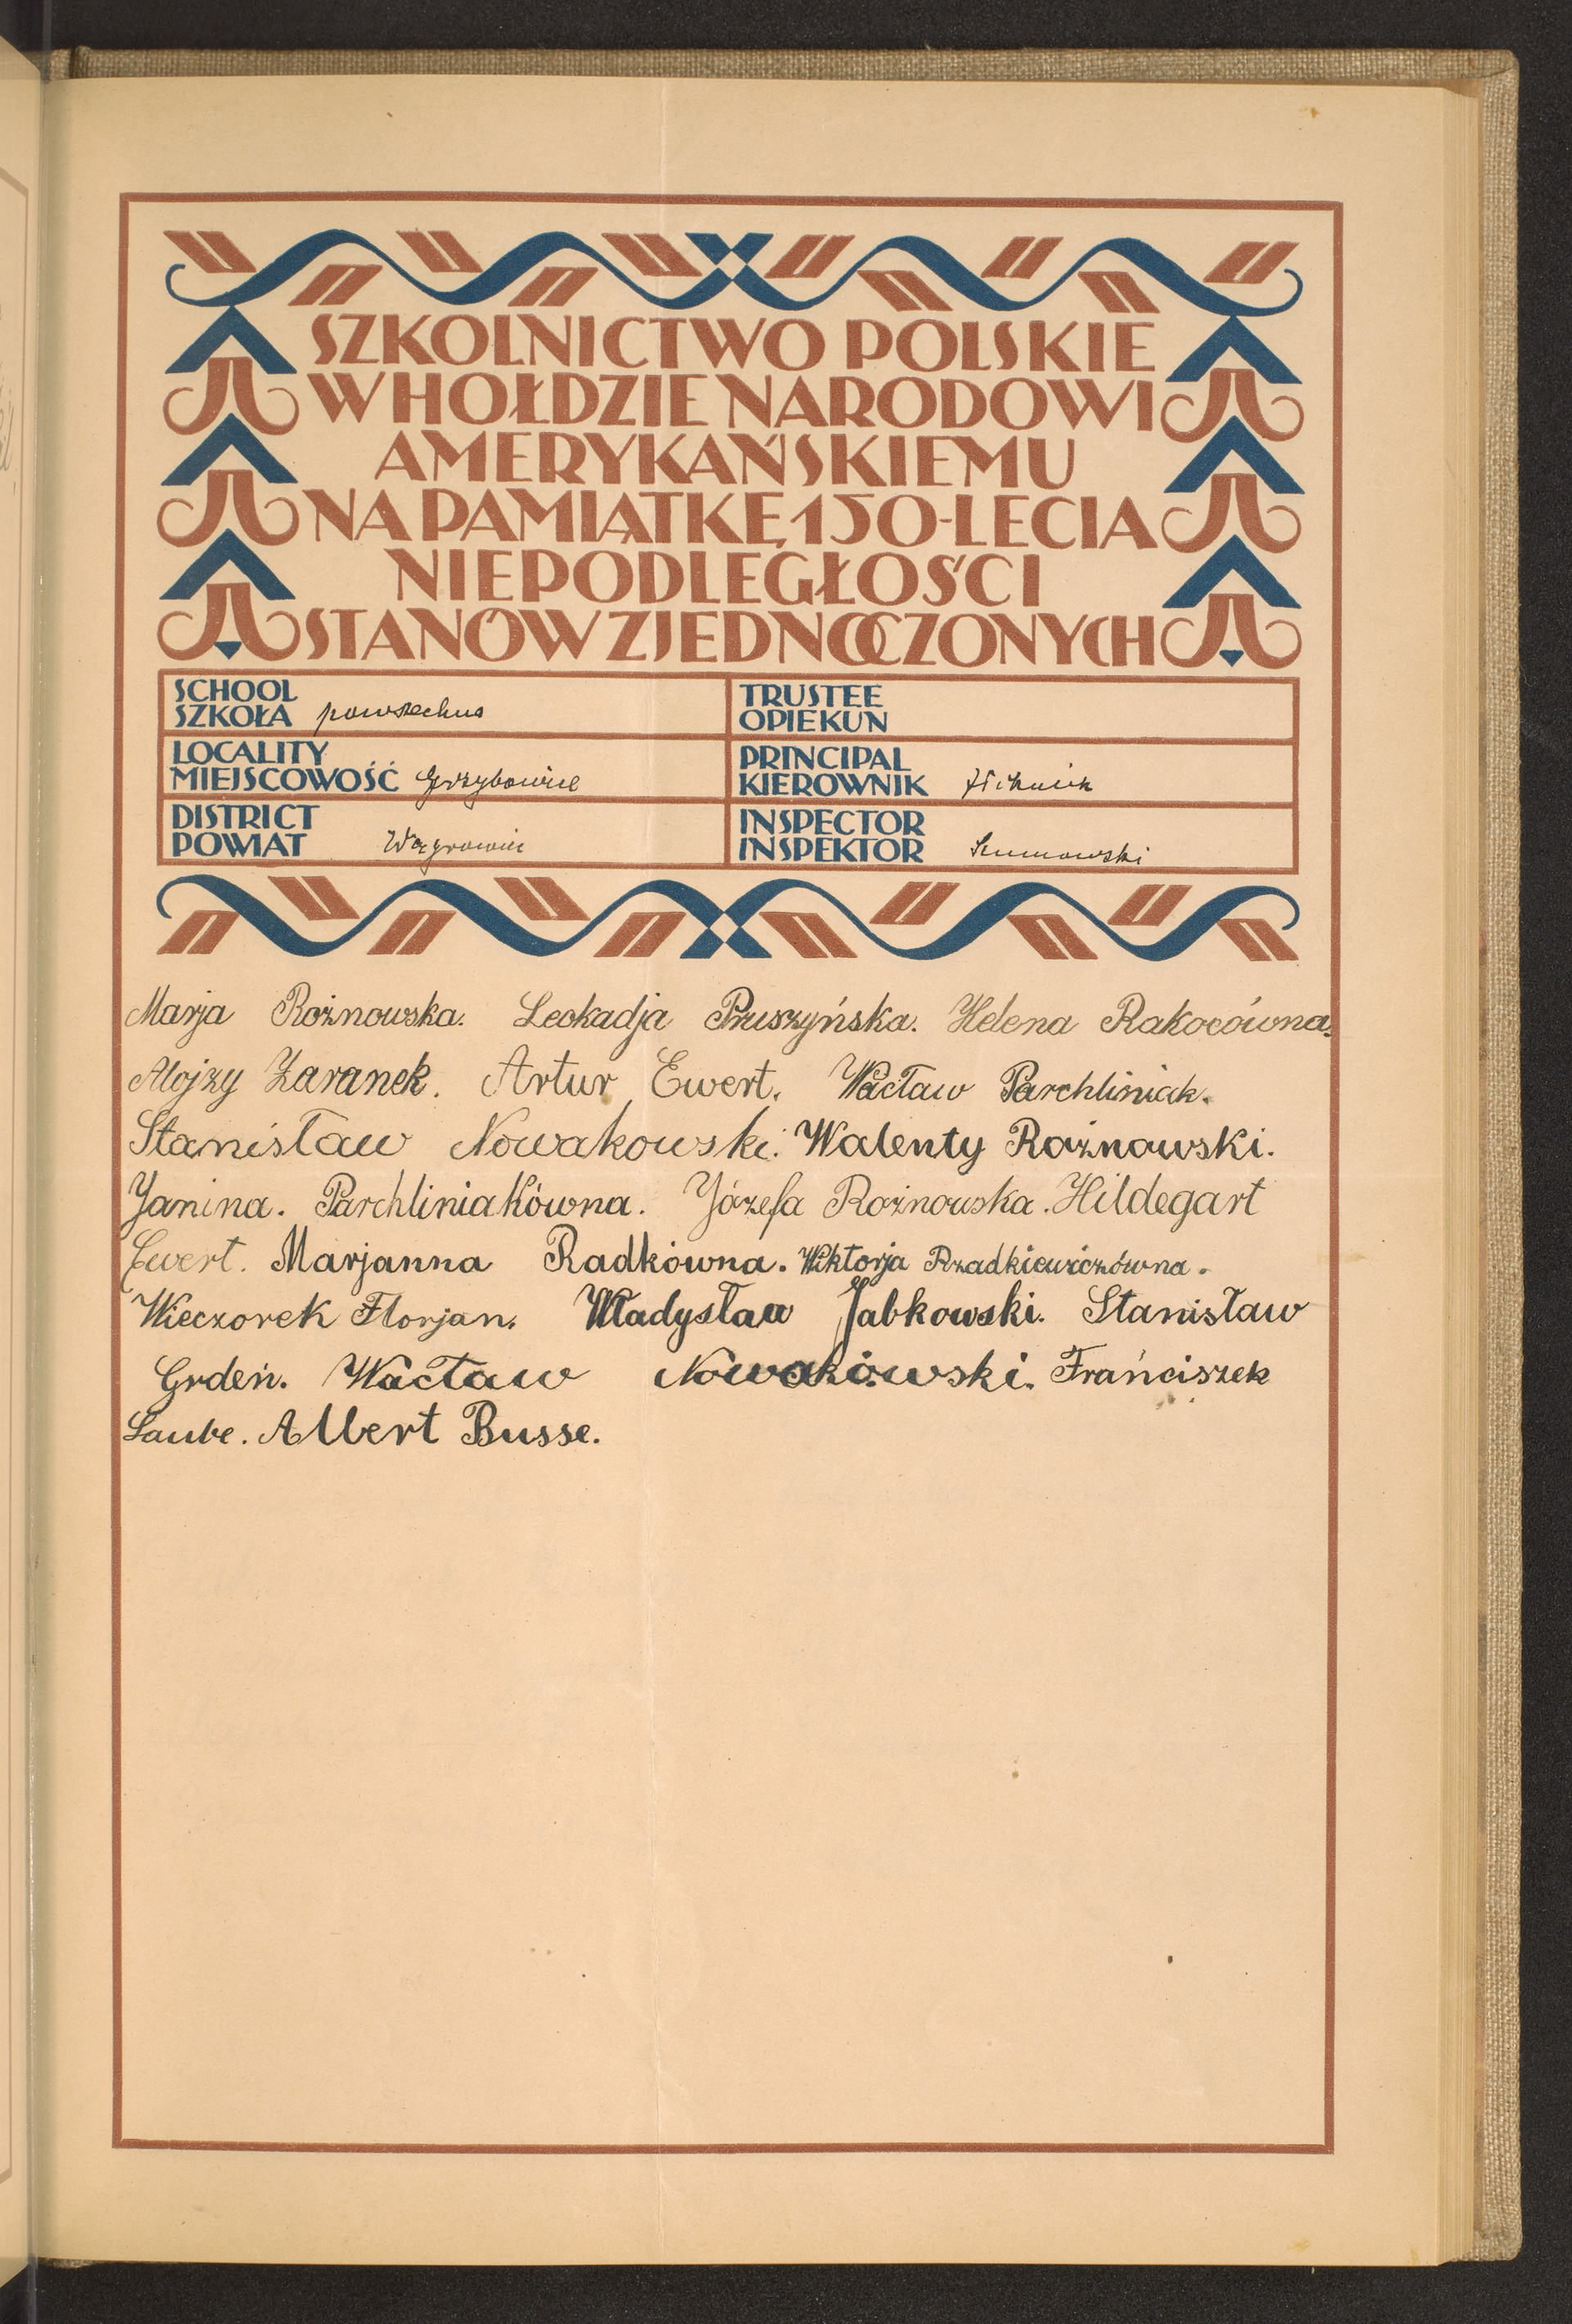 SZKOLNICTWO POLSKIE
W HOŁDZIE NARODOWI
AMERYKAŃSKIEMU
NA PAMIĄTKĘ 150-LECIA
NIEPODLEGŁOŚCI
STANÓW ZJEDNOCZONYCH
SCHOOL
SZKOŁA powszechna
TRUSTEE
OPIEKUN
LOCALITY
MIEJSCOWOŚĆ Grzybowice
PRINCIPAL
KIEROWNIK
DISTRICT
POWIAT Wągrowiec
INSPECTOR
INSPEKTOR
Marja Rożnowska. Leokadja Pruszyńska. Helena Rakocówna.
Alojzy Zaranek. Artur Ewert. Wacław Parchliniak.
Stanisław Nowakowski. Walenty Rożnowski.
Janina. Parchliniakówna. Józefa Rożnowska. Hildegart
Ewert. Marjanna Radkówna. Wiktorja Rzadkiewiczówna.
Wieczorek Florjan. Władysław Jabkowski. Stanisław
Grdeń. Wacław Nowakowski. Franciszek
Laube. Albert Busse.